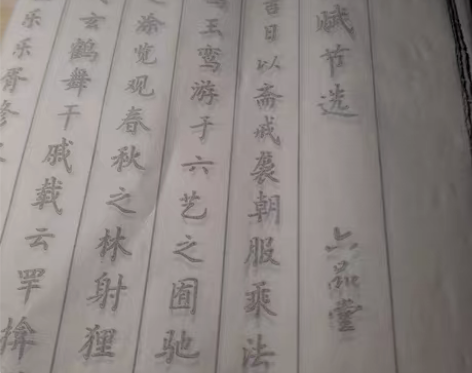 赋节选 六品堂
吉日以斋戒袭朝服乘法
玉鸾游于六艺之囿驰
之涂览观春秋之林射狸
玄鹤舞干戚载云罕揜
乐乐胥修